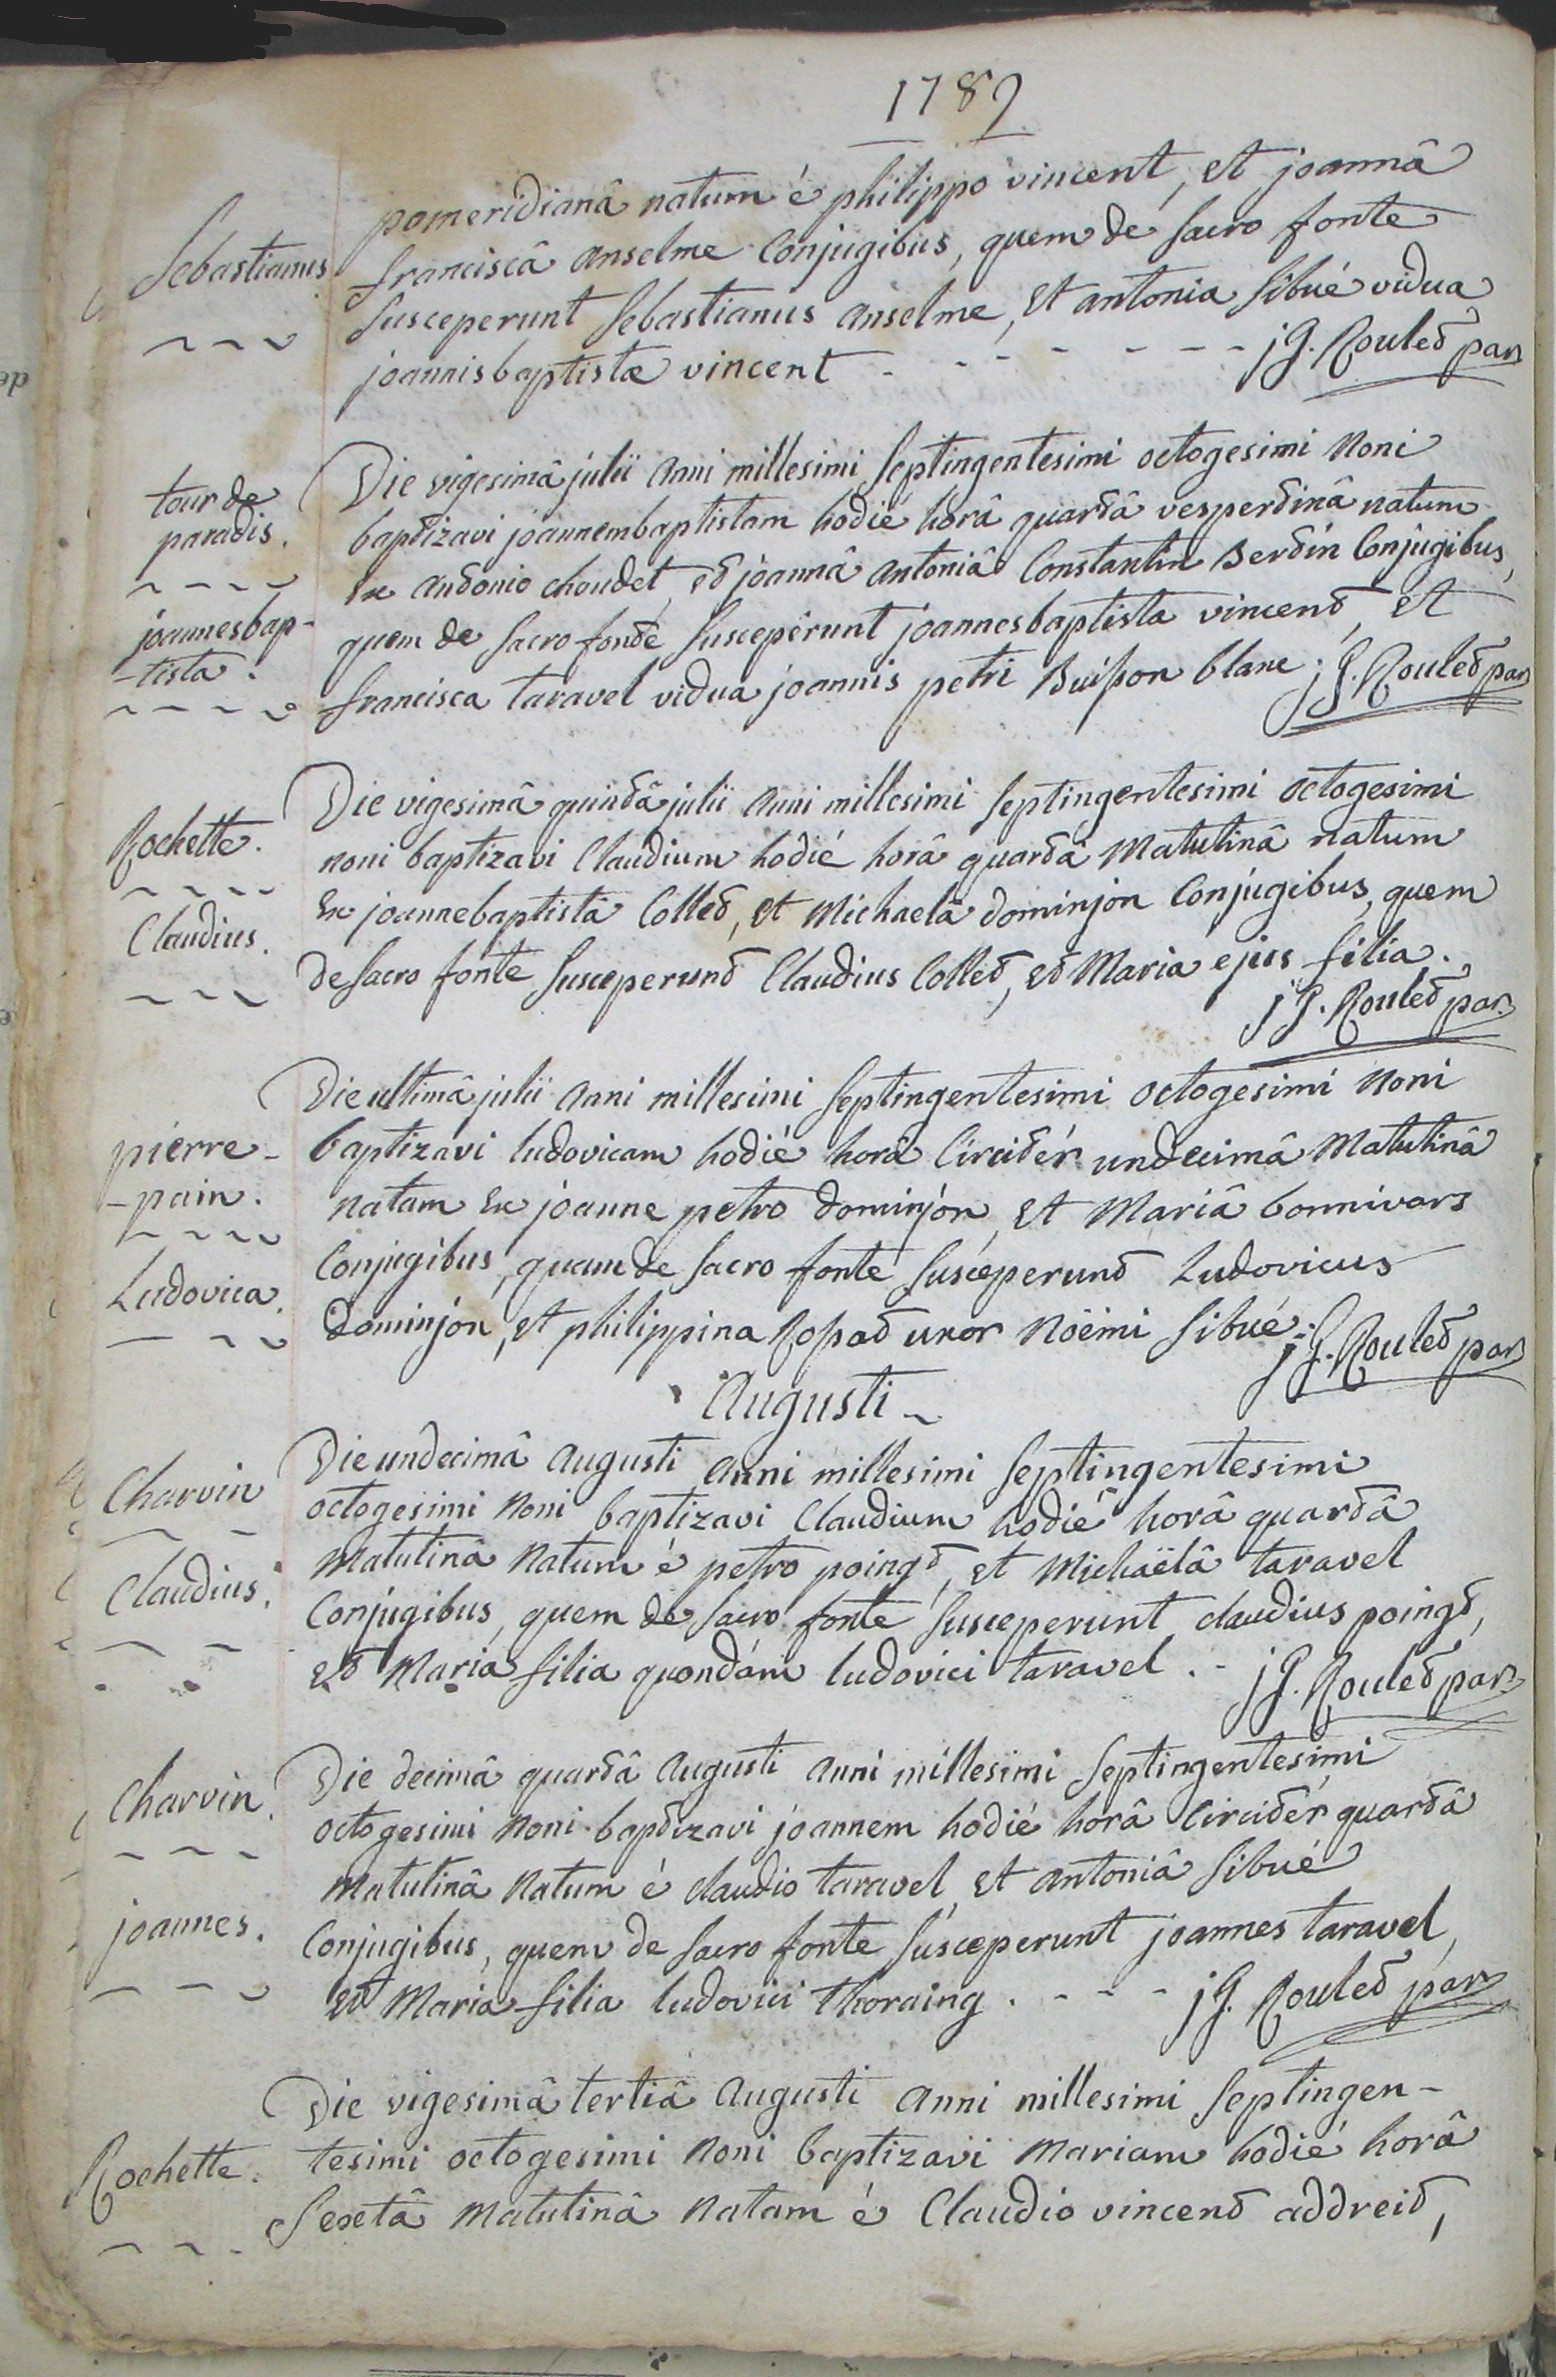 1789
Sebastianus
pomeridianâ natum é philippo vincent, et joannâ
franciscâ anselme Conjugibus, quem de sacro fonte
susceperunt Sebastianus anselme, et antonia sibué vidua
joannisbaptistæ vincent - - - - - - - jG. Rouled par
tour de
paradis.
joannesbap-
-tista.
Die vigesimâ julii anni millesimi septingentesimi octogesimi noni
baptizavi joannembaptistam hodié horâ quartâ vespertinâ natum
ex antonio choudet, et joannâ antoniâ Constantin Bertin Conjugibus,
quem de sacro fonte susceperunt joannesbaptista vincent, et
francisca taravel vidua joannis petri Buisson blanc. jG. Roulet par
Rochette.
Claudius.
Die vigesimâ quintâ julii anni millesimi septingentesimi octogesimi
noni baptizavi Claudium hodié horâ quartâ matutinâ natum
ex joannebaptistâ Collet, et Michaelâ dominjon Conjugibus, quem
de sacro fonte susceperunt Claudius Collet, et Maria ejus filia.
jG. Roulet par
pierre-
-pain.
Ludovica.
Die ultimâ julii anni millesimi septingentesimi octogesimi noni
baptizavi ludovicam hodié horâ Circitér undecimâ matutinâ
natam ex joanne petro dominjon, et Mariâ bonnivars
Conjugibus, quam de sacro fonte susceperunt Ludovicus
dominjon, et philippina Rossat uxor Nöemi sibué. jG. Roulet par
Augusti
Charvin
Claudius.
Die undecimâ augusti anni millesimi septingentesimi
octogesimi noni baptizavi Claudium hodié horâ quartâ
matutinâ natum é petro poingt, et Michaëlâ taravel
Conjugibus, quem de sacro fonte susceperunt claudius poingt,
et Maria filia quondám ludovici taravel. - jG. Roulet par
Charvin.
joannes.
Die decimâ quartâ augusti anni millesimi septingentesimi
octogesimi noni baptizavi joannem hodié horâ Circitér quartâ
matutinâ natum é claudio taravel, et antoniâ sibué
Conjugibus, quem de sacro fonte susceperunt joannes taravel,
et Maria filia ludovici thoraing. - - - jG. Roulet par
Rochette.
Die vigesimâ tertiâ augusti anni millesimi septingen-
tesimi octogesimi noni baptizavi mariam hodié horâ
sextâ matutinâ natam é Claudio vincent addreit,